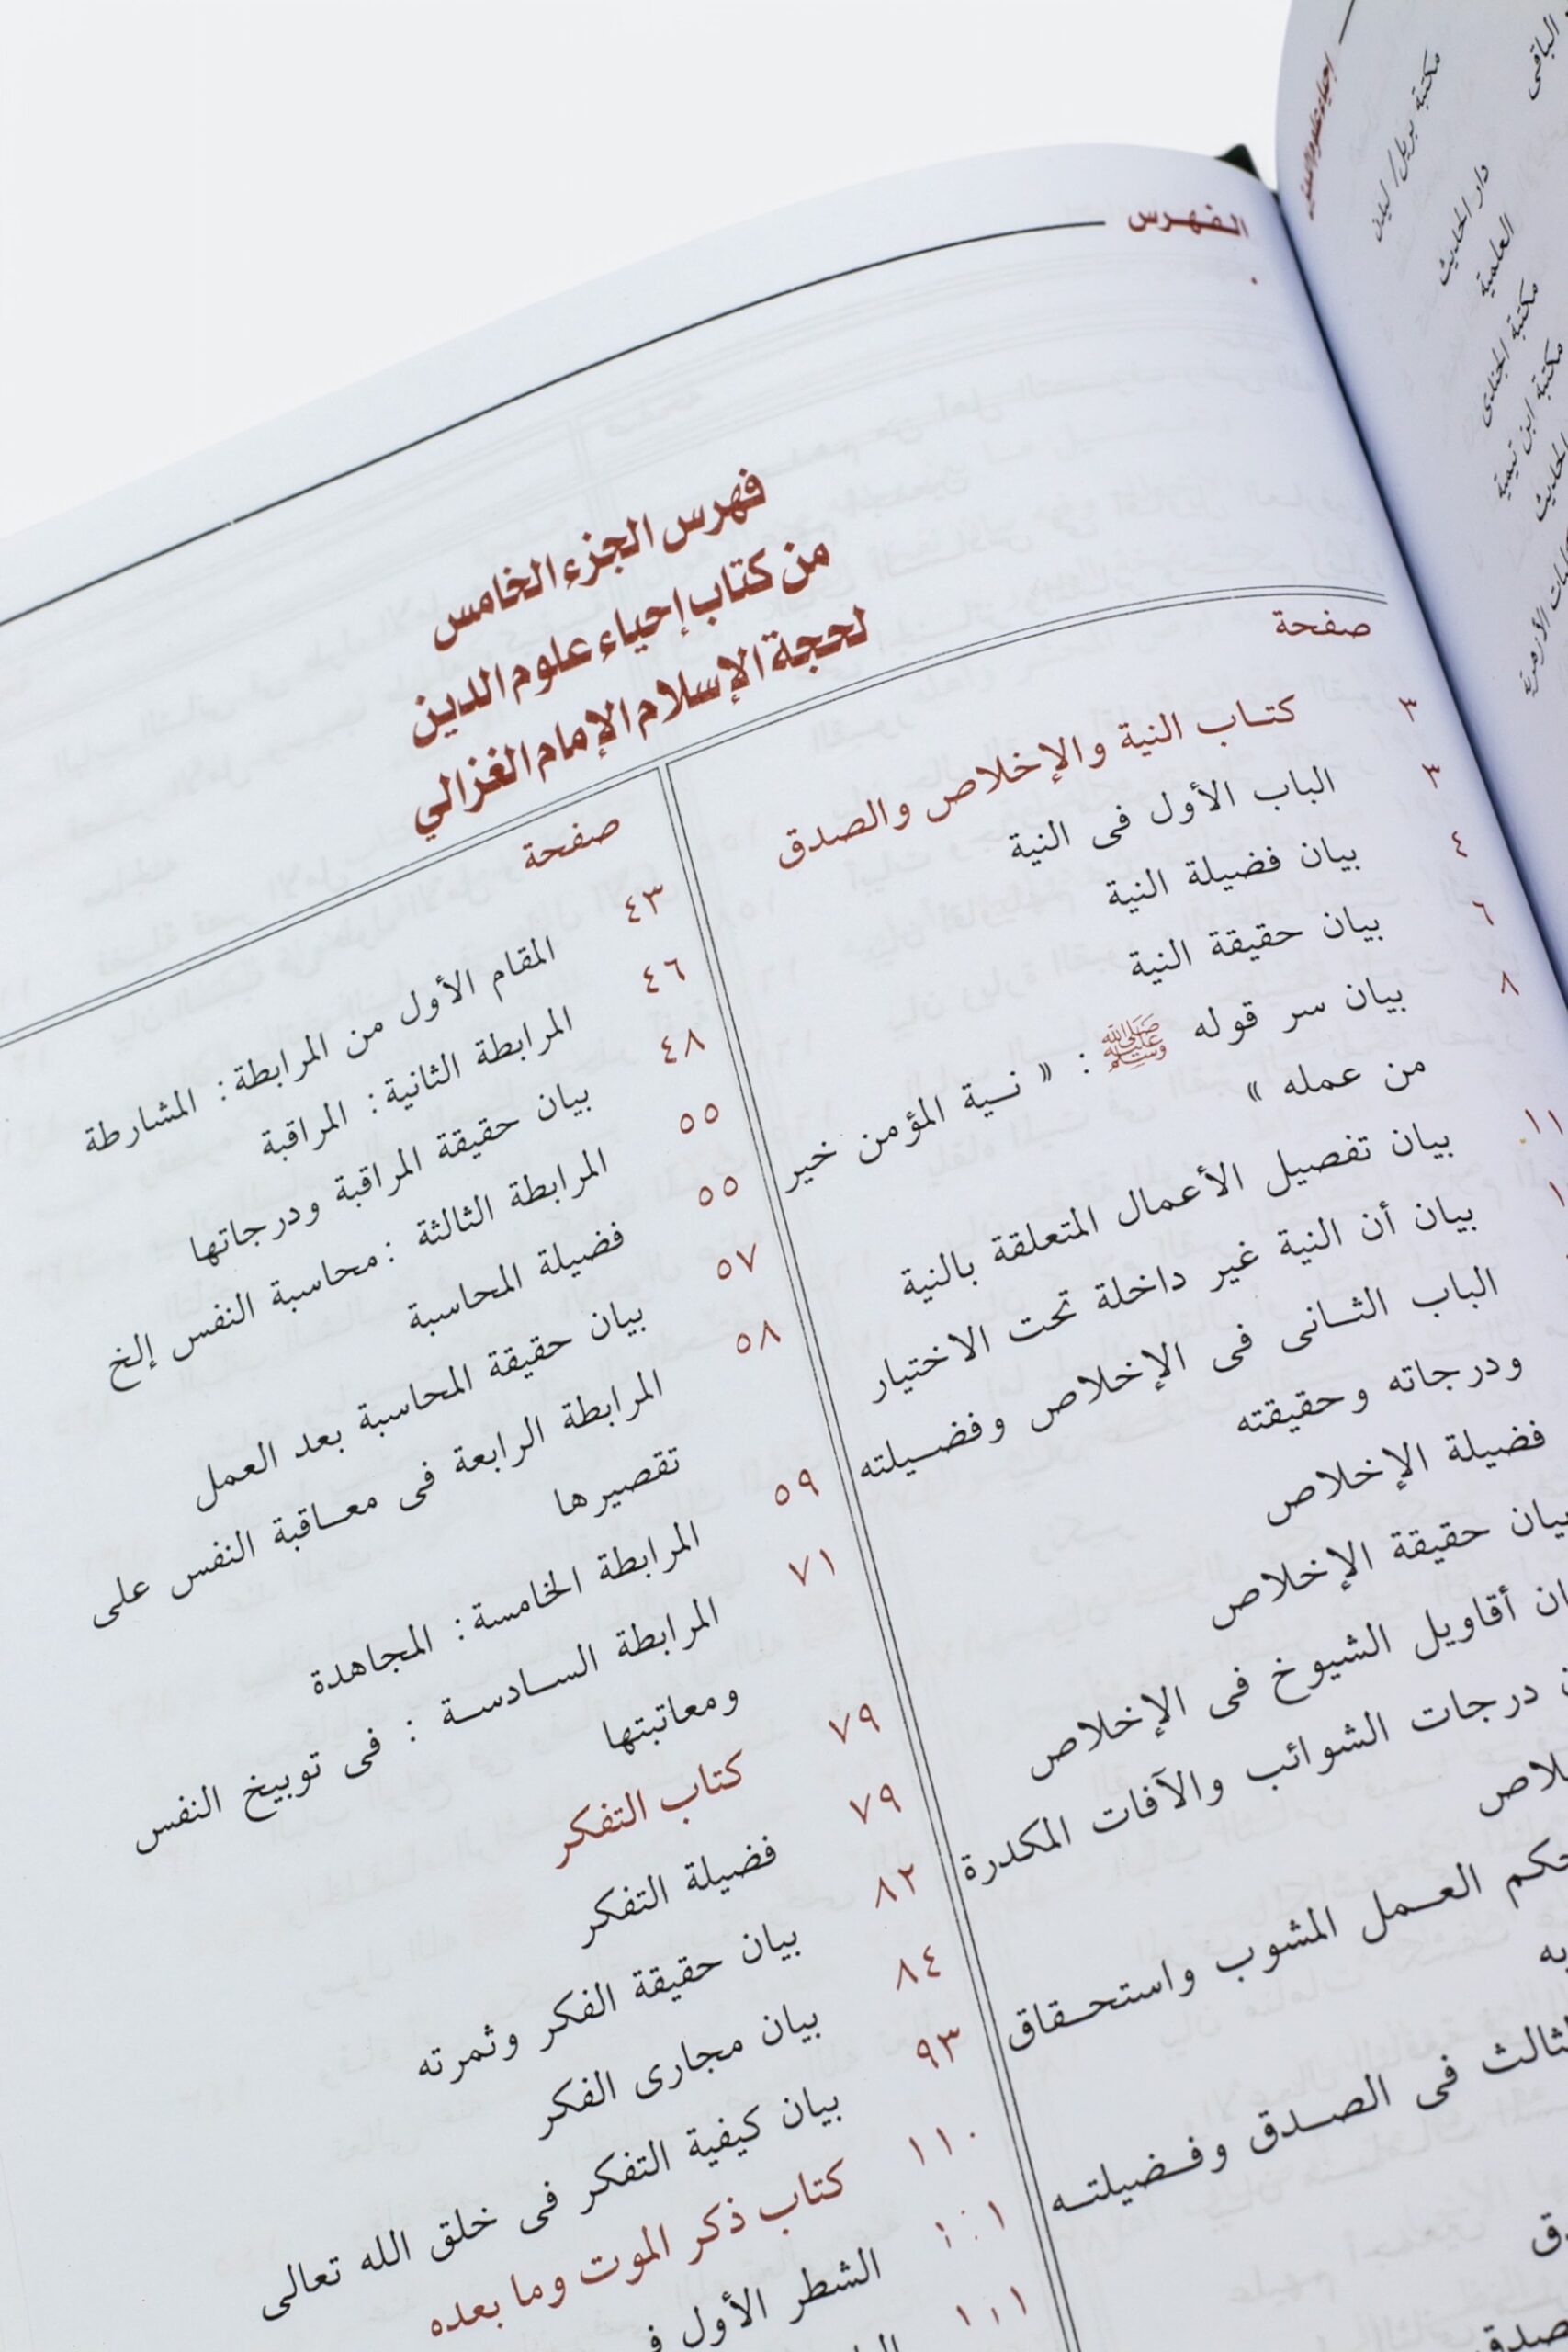 الفهرس
فهرس الجزء الخامس
من كتاب إحياء علوم الدين
لحجة الإسلام الإمام الغزالي
صفحة
٣ كتاب النية والإخلاص والصدق
٣ الباب الأول فى النية
٤ بيان فضيلة النية
٦ بيان حقيقة النية
٨ بيان سر قوله ﷺ : « نية المؤمن خير
من عمله »
١١ بيان تفصيل الأعمال المتعلقة بالنية
بيان أن النية غير داخلة تحت الاختيار
الباب الثانى فى الإخلاص وفضيلته
ودرجاته وحقيقته
فضيلة الإخلاص
بيان حقيقة الإخلاص
أقاويل الشيوخ فى الإخلاص
درجات الشوائب والآفات المكدرة
حكم العمل المشوب واستحقاق
الثالث فى الصدق وفضيلته
صفحة
٤٣ المقام الأول من المرابطة: المشارطة
٤٦ المرابطة الثانية: المراقبة
٤٨ بيان حقيقة المراقبة ودرجاتها
٥٥ المرابطة الثالثة :محاسبة النفس إلخ
٥٥ فضيلة المحاسبة
٥٧ بيان حقيقة المحاسبة بعد العمل
٥٨ المرابطة الرابعة فى معاقبة النفس على
تقصيرها
٥٩ المرابطة الخامسة: المجاهدة
٧١ المرابطة السادسة : فى توبيخ النفس
ومعاتبتها
٧٩ كتاب التفكر
٧٩ فضيلة التفكر
٨٢ بيان حقيقة الفكر وثمرته
٨٤ بيان مجارى الفكر
٩٣ بيان كيفية التفكر فى خلق الله تعالى
١١٠ كتاب ذكر الموت وما بعده
الشطر الأول
مكتبة بريل/ ليدن
دار الحديث
العلمية
مكتبة الجندى
مكتبة ابن تيمية